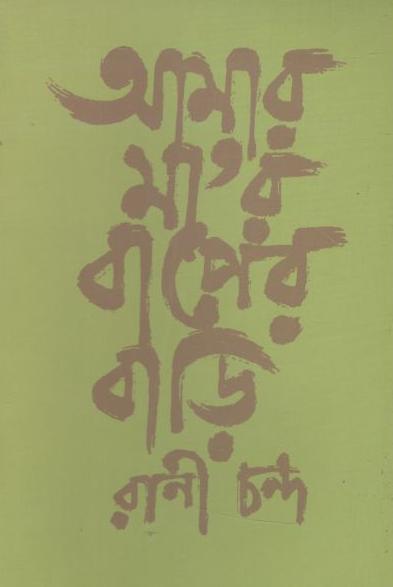 আমার
মা'র
বাপের
বাড়ি
রানী চন্দ